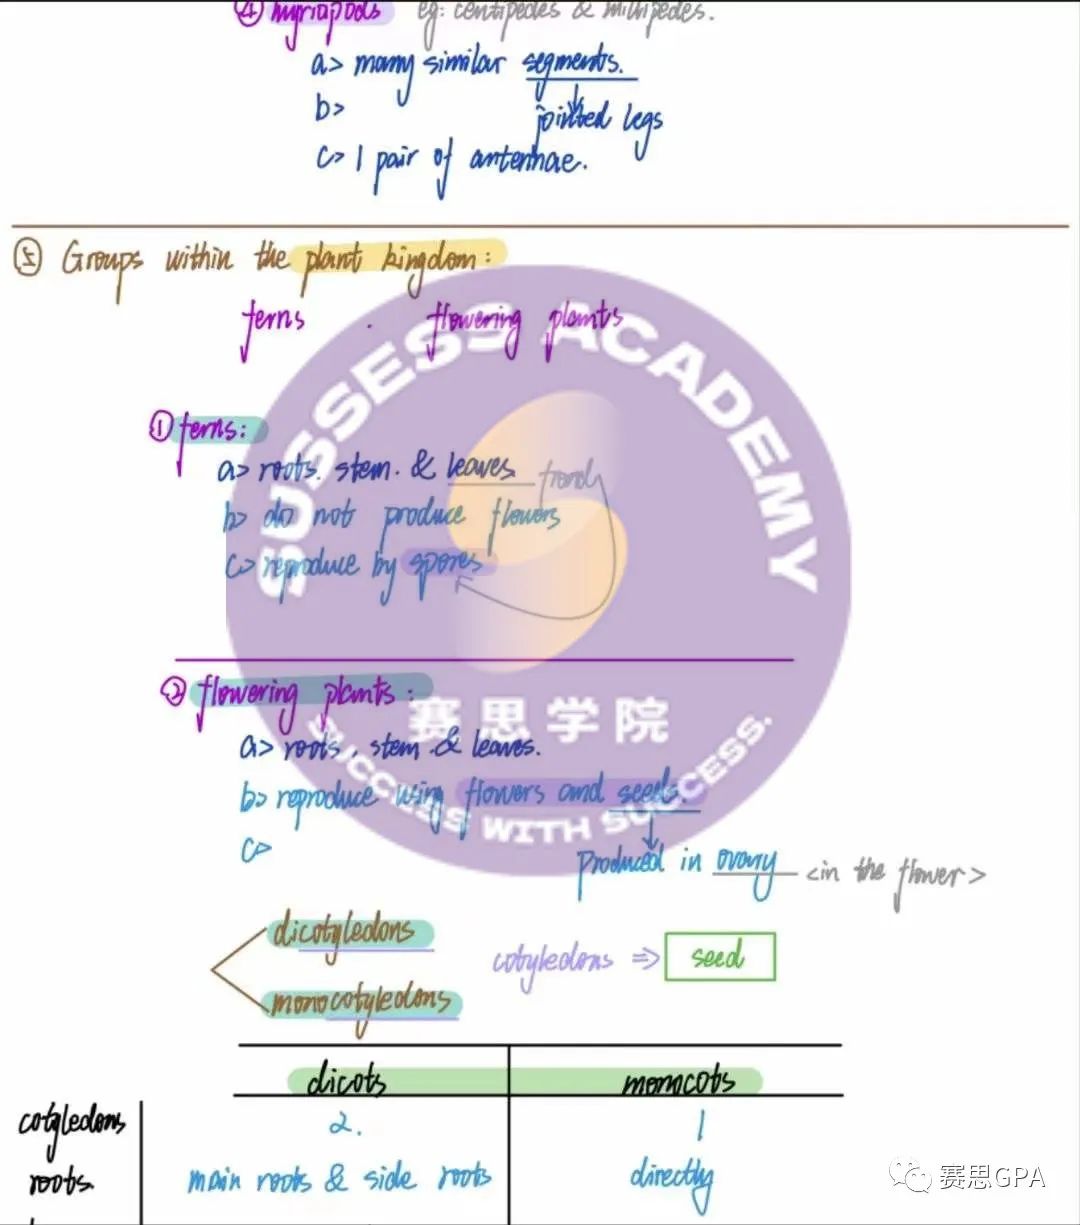 ④ myriapods eg: centipedes & millipedes.
a> many similar segments.
b> jointed legs
c> 1 pair of antennae.
⑤ Groups within the plant kingdom:
ferns . flowering plants
① ferns:
a> roots. stem. & leaves frond
b> do not produce flowers
c> reproduce by spores
② flowering plants:
a> roots, stem & leaves.
b> reproduce using flowers and seeds
c>
produced in ovary <in the flower>
dicotyledons
cotyledons => seed
monocotyledons
dicots monocots
cotyledons 2. 1
roots. main roots & side roots directly
SUSSESS ACADEMY
赛思学院
SUCCESS WITH SUCCESS.
赛思GPA